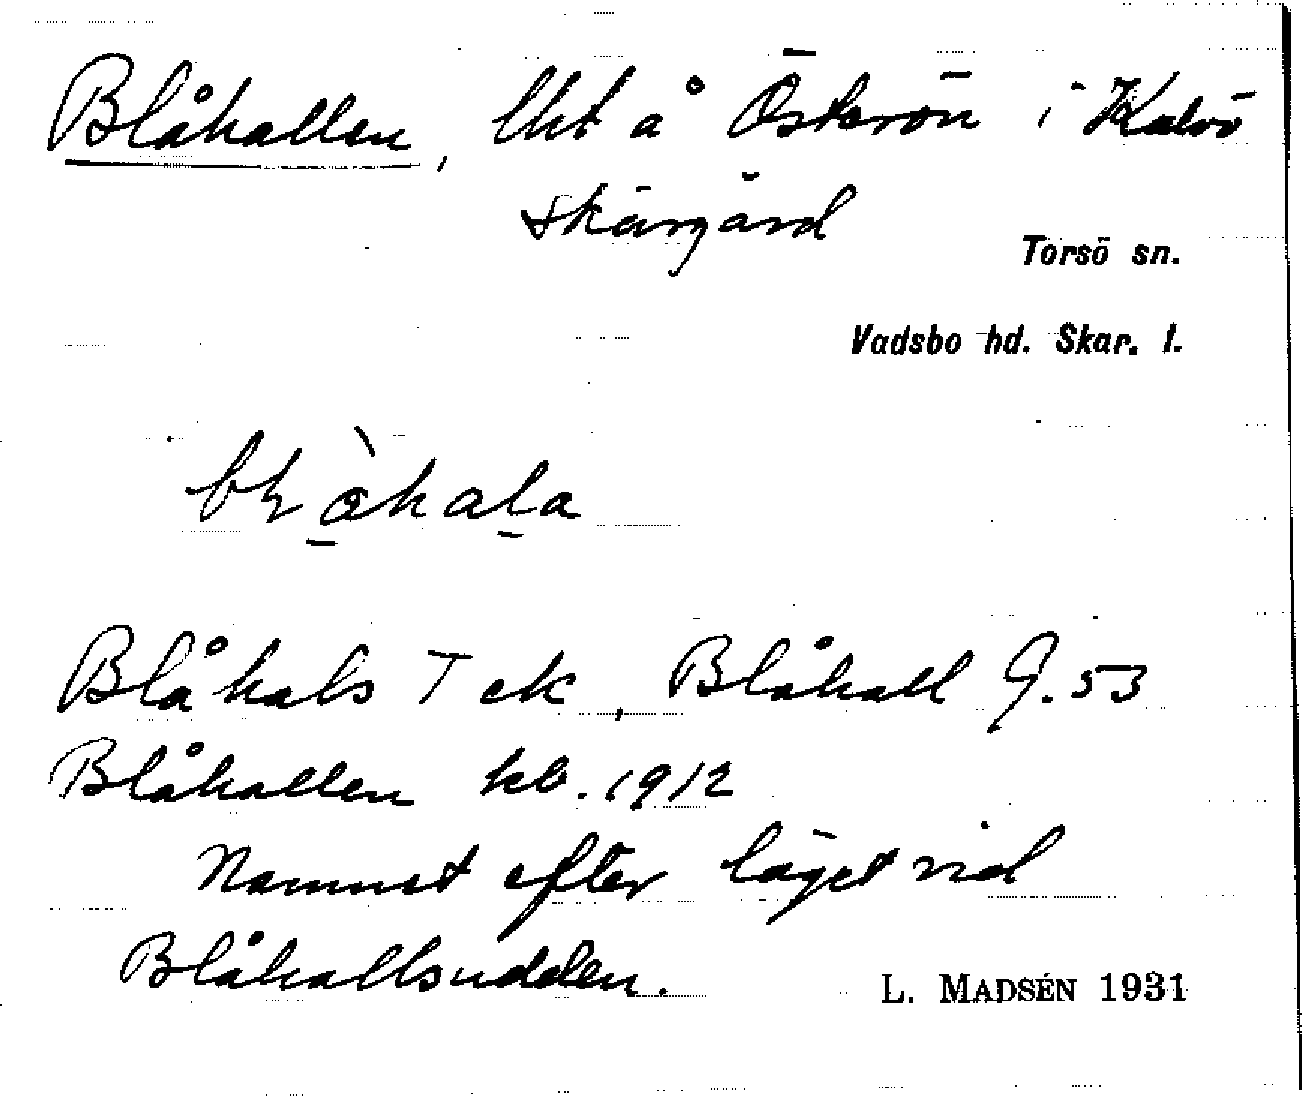 Blåhallen, lht å Österön i Kalvö
skärgård
Torsö sn.
Vadsbo hd. Skar. l.
Blåhals T ek, Blåhall J. 53
Blåhallen kb. 1912
Namnet efter läget vid
Blåhallsudden.
L. MADSÉN 1931